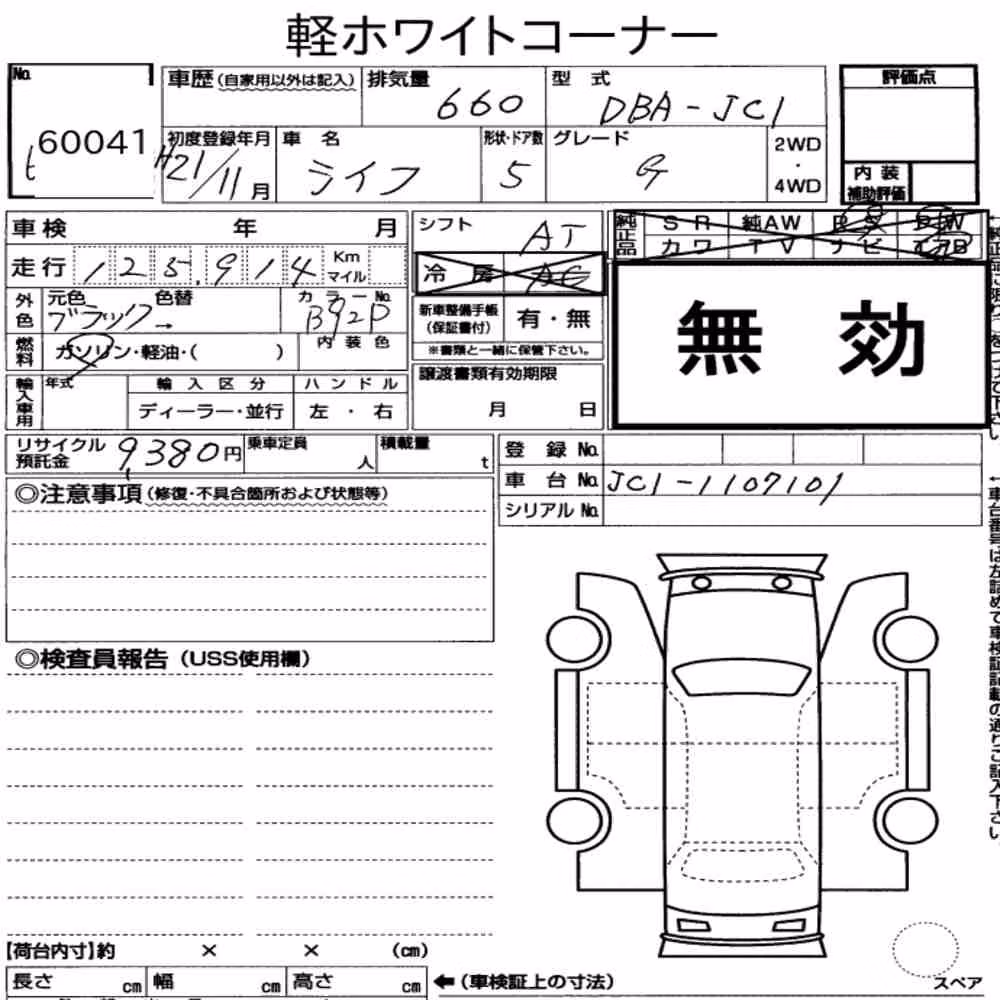 軽ホワイトコーナー
No. 60041
車歴(自家用以外は記入) 排気量 660 型 式 DBA-JC1 評価点
初度登録年月 H21/11月 車 名 ライフ 形状・ドア数 5 グレード G 2WD・4WD 内 装 補助評価
車検 年 月 シフト AT 純正品 S R 純AW P S P W
走行 125,914 Km マイル 冷 房 AC カ ワ T V ナ ビ エアB
外色 元色 ブラック 色替 カラーNo. B92P 新車整備手帳(保証書付) 有・無 無 効
燃料 ガソリン・軽油・( ) 内 装 色 ※書類と一緒に保管下さい。
輸入車用 年式 輸 入 区 分 ハ ン ド ル 譲渡書類有効期限
ディーラー・並行 左 ・ 右 月 日
リサイクル預託金 9,380円 乗車定員 人 積載量 t 登 録 No.
車 台 No. JC1-1107101
◎注意事項(修復・不具合箇所および状態等) シリアルNo.
◎検査員報告(USS使用欄)
【荷台内寸】約 × × (cm)
長さ cm 幅 cm 高さ cm ←(車検証上の寸法) スペア
←車台番号は左詰めで車検証記載の通りご記入下さい。